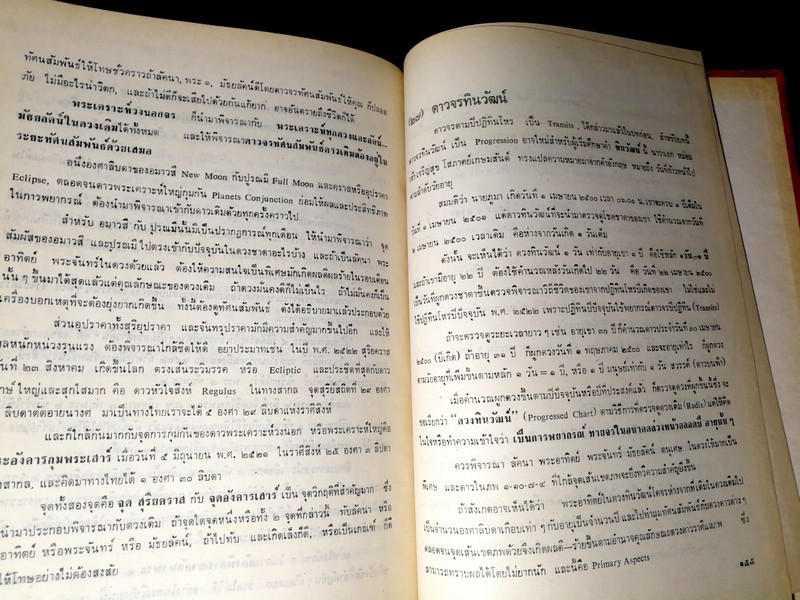 ทัศนสัมพันธ์ให้โทษชั่วคราวถ้าลัคนา, พระ ๑, มัธยลัคน์ดีโดยดาวจรทัศนสัมพันธ์ให้คุณ ก็ปลอด
ภัย ไม่มีอะไรน่าวิตก, และถ้าไม่ดีก็จะเสียไปด้วยกันแก้ยาก อาจอันตรายถึงชีวิตก็ได้
พระเคราะห์วงนอกจร ก็นำมาพิจารณากับ พระเคราะห์ทุกดวงและลัคน์—
มัธยลัคน์ในดวงเดิมได้ทั้งหมด และให้พิจารณาดาวจรทัศนสัมพันธ์ดาวเดิมต้องอยู่ใน
ระยะทัศนสัมพันธ์ด้วยเสมอ
อนึ่งองศาลิบดาของอมาวสี New Moon กับปูรณมี Full Moon และคราสหรืออุปราคา
Eclipse, ตลอดจนดาวพระเคราะห์ใหญ่กุมกัน Planets Conjunction ย่อมให้ผลและประสิทธิภาพ
ในการพยากรณ์ ต้องนำมาพิจารณาเข้ากับดาวเดิมด้วยทุกครั้งคราวไป
สำหรับ อมาวสี กับ ปูรณมีนั้นมีเป็นปรากฏการณ์ทุกเดือน ให้นำมาพิจารณาว่า จุด
สัมผัสของอมาวสี และปูรณมี ไปตรงเข้ากับปัจจุบันในดวงชาตาอะไรบ้าง และถ้าเป็นลัคนา พระ
อาทิตย์ พระจันทร์ในดวงด้วยแล้ว ต้องให้ความสนใจเป็นพิเศษมักเกิดผลดีผลร้ายในรอบเดือน
นั้น ๆ ขึ้นมาได้สุดแล้วแต่คุณลักษณะของดวงเดิม ถ้าดวงมั่นคงดีก็ไม่เป็นไร ถ้าไม่มั่นคงก็เป็น
เครื่องบอกเหตุที่จะต้องยุ่งยากเกิดขึ้น ทั้งนี้ต้องดูทัศนสัมพันธ์ ดังได้อธิบายมาแล้วประกอบด้วย
ส่วนอุปราคาทั้งสุริยุปราคา และจันทรุปราคามักมีความสำคัญมากขึ้นไปอีก และให้
ผลหนักหน่วงรุนแรง ต้องพิจารณาใกล้ชิดให้ดี อย่าประมาทเช่น ในปี พ.ศ. ๒๕๒๒ สุริยคราส
วันที่ ๒๓ สิงหาคม เกิดขึ้นโลก ตรงเส้นระวิมรรค หรือ Ecliptic และประชิดที่สุดกับดาว
กษ์ใหญ่และสุกใสมาก คือ ดาวหัวใจสิงห์ Regulus ในทางสากล จุดสุริย์สถิตที่ ๒๙ องศา
ลิบดาตัดอายนางศ มาเป็นทางไทยเราจะได้ ๕ องศา ๒๙ ลิบดาแห่งราศีสิงห์
และก็ใกล้กันมากกับจุดการกุมกันของดาวพระเคราะห์วงนอก หรือพระเคราะห์ใหญ่คือ
ระอังคารกุมพระเสาร์ เมื่อวันที่ ๕ มิถุนายน พ.ศ. ๒๕๒๑ ในราศีสิงห์ ๒๕ องศา ๓ ลิบดา
ทางสากล, และคิดมาทางไทยได้ ๑ องศา ๓๐ ลิบดา
จุดทั้งสองจุดคือ จุด สุริยคราส กับ จุดอังคารเสาร์ เป็น จุดวิกฤติที่สำคัญมาก ซึ่ง
นำมาประกอบพิจารณากับดวงเดิม ถ้าจุดใดจุดหนึ่งหรือทั้ง ๒ จุดที่กล่าวนี้ ทับลัคนา หรือ
อาทิตย์ หรือพระจันทร์ หรือ มัธยลัคน์, ถ้าไปทับ และเกิดเล็งก็ดี, หรือเป็นเกณฑ์ ก็ดี
ให้โทษอย่างไม่ต้องสงสัย
(๒๗) ดาวจรทินวัฒน์
ดาวจรตามปีปฏิทินโหร เป็น Transits, ได้กล่าวมาแล้วในบทก่อน, สำหรับบทนี้
ดาวจรทินวัฒน์ เป็น Progression อาจใหม่สำหรับผู้เริ่มศึกษาคำ ทินวัฒน์ นี้ นาวาเอก หม่อม
เจริญสุข โสภาคย์เกษมสันต์ ทรงแปลความหมายมาจากคำอังกฤษ หมายถึง วันที่ก้าวหน้าไป
ตามลำดับวัยอายุ
สมมติว่า นายภูมา เกิดวันที่ ๑ เมษายน ๒๕๐๐ เวลา ๐๖.๐๐ น. เขาจะครบ ๑ ปีเต็มใน
วันที่ ๑ เมษายน ๒๕๐๑ แต่ดาวทินวัฒน์ที่จะนำมาตรวจดูโชคชาตาของเขา ใช้คำนวณจากวันที่
๒ เมษายน ๒๕๐๐ เวลาเดิม คือห่างจากวันเกิด ๑ วันเต็ม
ดังนั้น จะเห็นได้ว่า ดวงทินวัฒน์ ๑ วัน เท่ากับอายุเขา ๑ ปี คือใช้หลัก ๑วัน=๑ ปี
และถ้าเขามีอายุ ๒๒ ปี ต้องใช้คำนวณหลังวันเกิดไป ๒๒ วัน คือ วันที่ ๒๒ เมษายน ๒๕๐๐
เป็นวันที่ผูกดวงชาตาขึ้นตรวจพิจารณาวิถีชีวิตของเขาจากปฏิทินโหรปีเกิดของเขา ให้เช่นและไม่
ใช้ปฏิทินโหรปีปัจจุบัน พ.ศ. ๒๕๒๒ เพราะปฏิทินปีปัจจุบันใช้พยากรณ์ดาวจรปีปฏิทิน (Transits)
ถ้าจะตรวจดูระยะเวลายาว ๆ เช่น อายุเขา ๓๐ ปี ก็คำนวณดาวประจำวันที่ ๓๐ เมษายน
๒๕๐๐ (ปีเกิด) ถ้าอายุ ๓๑ ปี ก็ผูกดวงวันที่ ๑ พฤษภาคม ๒๕๐๐ และจะอายุเท่าไร ก็ผูกดวง
ตามวัยอายุที่เพิ่มขึ้นตามหลัก ๑ วัน = ๑ ปี, หรือ ๑ ปี มนุษย์เท่ากับ ๑ วัน สวรรค์ (ดาวบนฟ้า)
เมื่อคำนวณผูกดวงขึ้นตามปีปัจจุบันหรือปีที่ประสงค์แล้ว ก็ตรวจดูดวงที่ผูกขึ้นนี้ซึ่ง จะ
ขอเรียกว่า "ดวงทินวัฒน์" (Progressed Chart) ตามวิธีการที่ตรวจดูดวงเดิม (Radix) แต่ให้คิด
ในใจหรือทำความเข้าใจว่า เป็นการพยากรณ์ ทายจรในอนาคตล่วงหน้าตลอดปี อายุนั้น ๆ
ควรพิจารณา ลัคนา พระอาทิตย์ พระจันทร์ มัธยลัคน์ ตนุเศษ ในดวงใช้มากเป็น
พิเศษ และดาวในภพ ๑-๑๐-๗-๔ ที่ใกล้จุดเส้นเขตภพจะยิ่งทวีความสำคัญยิ่งขึ้น
ถ้าสังเกตอาจเห็นได้ว่า พระอาทิตย์ในดวงทินวัฒน์โคจรห่างจากที่เดิมในดวงเดิมไป
เป็นจำนวนองศาลิบดาเกือบเท่า ๆ กับอายุเป็นจำนวนปี และไปทำมุมสัมพันธ์กับดวงดาวต่าง ๆ
ตลอดจนจุดเส้นเขตภพด้วยจึงเกิดผลดี—ร้ายขึ้นตามอำนาจคุณลักษณะดวงดาวราศีและภพ ซึ่ง
สามารถทราบผลได้โดยไม่ยากนัก และนี้คือ Primary Aspects
๑๕๕